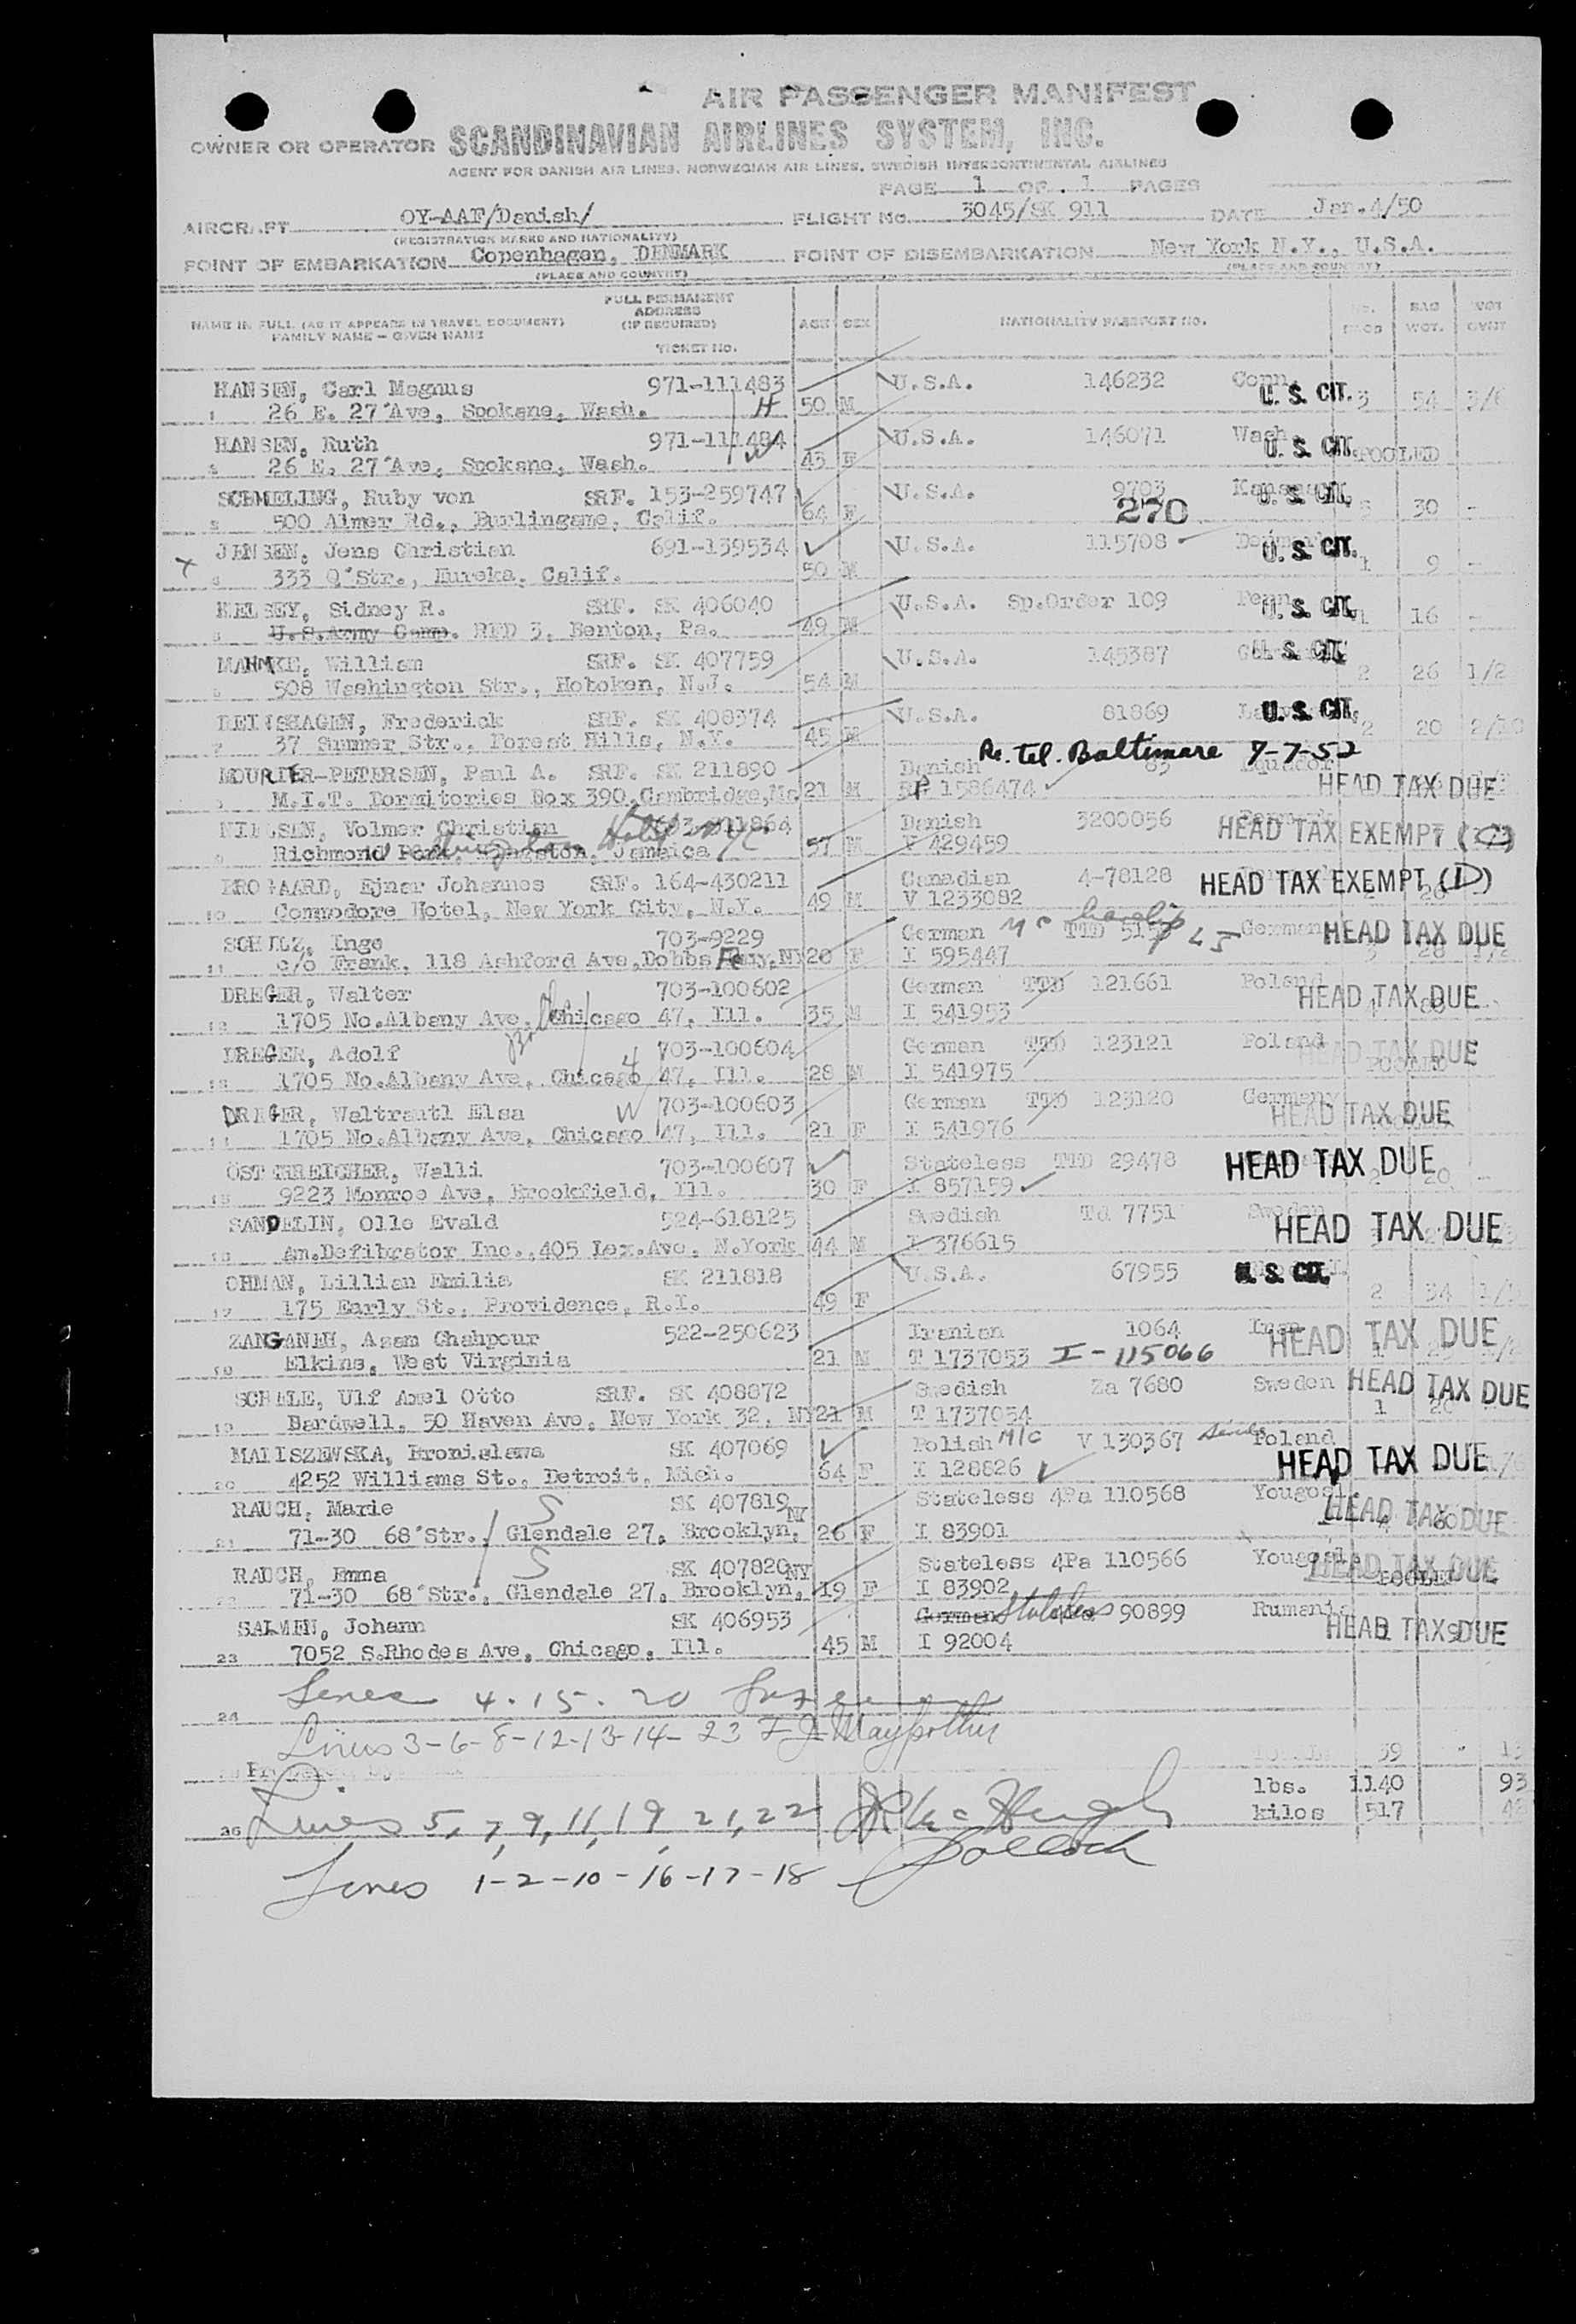 AIR PASSENGER MANIFEST
OWNER OR OPERATOR SCANDINAVIAN AIRLINES SYSTEM, INC.
AGENT FOR DANISH AIR LINES, NORWEGIAN AIR LINES, SWEDISH INTERCONTINENTAL AIRLINES
PAGE 1 OF 1 PAGES
AIRCRAFT OY-AAF/Danish/ FLIGHT No. 3045/SK 911 DATE Jan.4/50
(REGISTRATION MARKS AND NATIONALITY)
POINT OF EMBARKATION Copenhagen, DENMARK POINT OF DISEMBARKATION New York N.Y., U.S.A.
(PLACE AND COUNTRY) (PLACE AND COUNTRY)
FULL PERMANENT
ADDRESS
(IF REQUIRED)
NAME IN FULL (AS IT APPEARS IN TRAVEL DOCUMENT)
FAMILY NAME – GIVEN NAME
TICKET No.
AGE SEX NATIONALITY PASSPORT NO. BAG WGT.
HANSEN, Carl Magnus 971-111483 U.S.A. 146232 Conn. U. S. CIT.
1 26 E. 27'Ave, Spokane, Wash. H 50 M 3 54 3/6
HANSEN, Ruth 971-111484 U.S.A. 146071 Wash. U. S. CIT. POOLED
2 26 E. 27'Ave, Spokane, Wash. W 43 F
SCHMELING, Ruby von SRF. 153-259747 U.S.A. 9703 Kansas U. S. CIT.
3 500 Aimer Rd., Burlingame, Calif. 64 F 270 30 -
JENSEN, Jens Christian 691-139534 U.S.A. 115708 U. S. CIT.
x 4 333 Q'Str., Eureka, Calif. 50 M 1 9 -
KELSEY, Sidney R. SRF. SK 406040 U.S.A. Sp.Order 109 Penn. U. S. CIT.
5 U.S.Army Comp. RFD 3, Benton, Pa. 49 M 1 16 -
MAHNKE, William SRF. SK 407759 U.S.A. 145387 U. S. CIT.
6 508 Washington Str., Hoboken, N.J. 54 M 2 26 1/2
REINSHAGEN, Frederick SRF. SK 408374 U.S.A. 81869 U. S. CIT.
7 37 Summer Str., Forest Hills, N.Y. 45 M 2 20 2/10
Re. tel. Baltimore 7-7-52
MOURIER-PETERSEN, Paul A. SRF. SK 211890 Danish 83 Equador
8 M.I.T. Dormitories Box 390, Cambridge, Ma 21 M RP 1586474 HEAD TAX DUE
NIELSEN, Volmer Christian Danish 3200056 HEAD TAX EXEMPT (C)
9 Richmond Park, Kingston, Jamaica 57 M V 429459
KROGAARD, Ejner Johannes SRF. 164-430211 Canadian 4-78128 HEAD TAX EXEMPT (D)
10 Commodore Hotel, New York City, N.Y. 49 M V 1233082
SCHULZ, Inge 703-9229 German TTD German HEAD TAX DUE
11 c/o Frank, 118 Ashford Ave, Dobbs Fery, NY 20 F I 595447
DREGER, Walter 703-100602 German TTD 121661 Poland HEAD TAX DUE
12 1705 No.Albany Ave, Chicago 47, Ill. 35 M I 541953
DREGER, Adolf 703-100604 German TTD 123121 Poland HEAD TAX DUE
13 1705 No.Albany Ave, Chicago 47, Ill. 28 M I 541975 POOLED
DREGER, Waltrautl Elsa W 703-100603 German TTD 123120 Germany HEAD TAX DUE
14 1705 No.Albany Ave, Chicago 47, Ill. 21 F I 541976
OSTERREICHER, Walli 703-100607 Stateless TTD 29478 HEAD TAX DUE
15 9223 Monroe Ave, Brookfield, Ill. 30 F I 857159 20 -
SANDELIN, Olle Evald 524-618125 Swedish Td 7751 Sweden HEAD TAX DUE
16 Am.Defibrator Inc., 405 Lex.Ave, N.York 44 M I 376615
OHMAN, Lillian Emilia SK 211818 U.S.A. 67955 U. S. CIT.
17 175 Early St., Providence, R.I. 49 F 2 34
ZANGANEH, Azam Chahpour 522-250623 Iranian 1064 Iran HEAD TAX DUE
18 Elkins, West Virginia 21 M T 1737053 I-115066
SCHALE, Ulf Axel Otto SRF. SK 408872 Swedish Za 7680 Sweden HEAD TAX DUE
19 Bardwell, 50 Haven Ave, New York 32, NY 21 M T 1737054 1
MALISZEWSKA, Bronislawa SK 407069 Polish M/C V 130367 Poland HEAD TAX DUE
20 4252 Williams St., Detroit, Mich. 64 F I 128826
RAUCH, Marie S SK 407819 NY Stateless 4Pa 110568 Yougosl. HEAD TAX DUE
21 71-30 68'Str., Glendale 27, Brooklyn, 26 F I 83901
RAUCH, Emma S SK 407820 NY Stateless 4Pa 110566 Yougosl. HEAD TAX DUE
22 71-30 68'Str., Glendale 27, Brooklyn, 19 F I 83902
SALMEN, Johann SK 406953 German Stateless 90899 Rumania HEAD TAX DUE
23 7052 S.Rhodes Ave, Chicago, Ill. 45 M I 92004
24 Lines 4. 15. 20
Lines 3-6-8-12-13-14-23
59
lbs. 1140 93
36 Lines 5, 7, 9, 11, 19, 21, 22 kilos 517
Lines 1-2-10-16-17-18